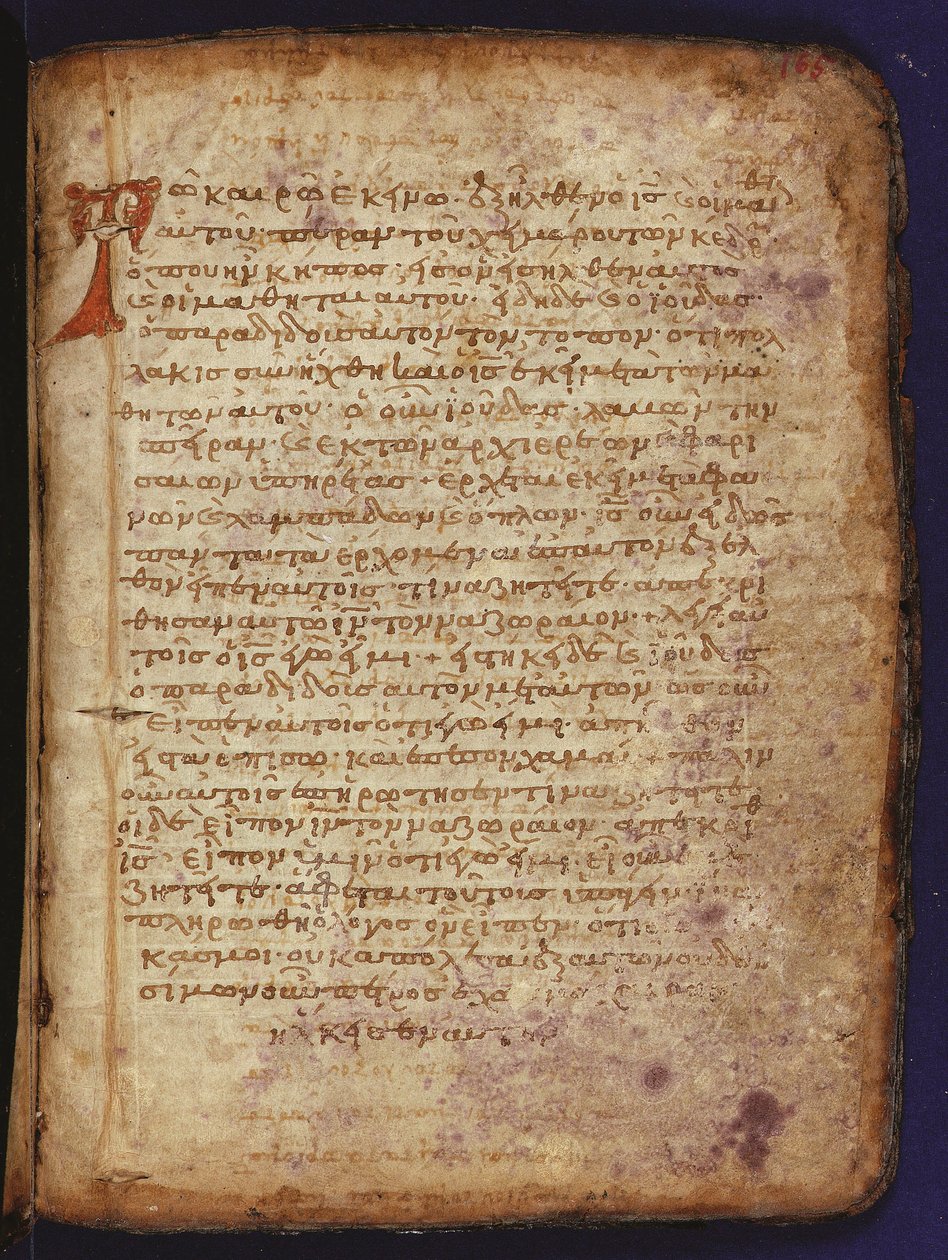 165
Τῶ καιρῶ ἐκείνω· ἐξῆλθεν ὁ ις̅ ϗ οἱ μαθη
αὐτοῦ· πέραν τοῦ χειμέρου τῶν κέδρ
ὅπου ἦν κῆπος· εἰς ὃν εἰσῆλθεν αὐτὸς
ϗ οἱ μαθηταὶ αὐτοῦ· ἤδη δὲ ϗ ὁ ἰούδας·
ὁ παραδιδοὺς αὐτὸν τὸν τόπον· ὅτι πολ
λάκις συνήχθη καὶ ὁ ις̅ ἐκεῖ μετὰ τῶν μα
θητῶν αὐτοῦ· ὁ οὖν ἰούδας· λαβὼν τὴν
σπεῖραν· ϗ ἐκ τῶν ἀρχιερέων ϗ φαρι
σαίων ὑπηρέτας + ἔρχεται ἐκεῖ μετὰ φα
νῶν ϗ λαμπάδων ϗ ὅπλων· ις̅ οὖν εἰδὼς
πάντα τὰ ἐρχόμενα ἐπ' αὐτὸν ἐξελ
θὼν εἶπεν αὐτοῖς· τίνα ζητεῖτε· ἀπεκρί
θησαν αὐτῶ ιν̅ τὸν ναζωραῖον· + λέγει αὐ
τοῖς ὁ ις̅ ἐγώ εἰμι· + εἱστήκει δὲ ϗ ἰούδας
ὁ παραδιδοὺς αὐτὸν μετ' αὐτῶν ὡς οὖν
εἶπεν αὐτοῖς ὅτι ἐγώ εἰμι· ἀπῆλθον
εἰς τὰ ὀπίσω· καὶ ἔπεσον χαμαί· + πάλιν
οὖν αὐτοὺς ἐπηρώτησεν τίνα ζητεῖτε·
οἱ δὲ εἶπον ιν̅ τὸν ναζωραῖον· ἀπεκρίθ
ις̅· εἶπον ὑμῖν ὅτι ἐγώ εἰμι· εἰ οὖν
ζητεῖτε· ἄφεται τούτους ὑπάγειν· ἵνα
πληρωθῆ ὁ λόγος ὃν εἶπεν· ὅτι
κάς μοι· οὐκ ἀπόλεσα ἐξ αὐτῶν οὐδένα
σίμων οὖν πέτρος ἔχων μάχαιραν
εἵλκυσεν αὐτὴν